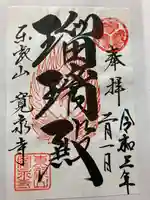 奉拝
令和三年
二月一日
瑠璃殿
東叡山
寛永寺